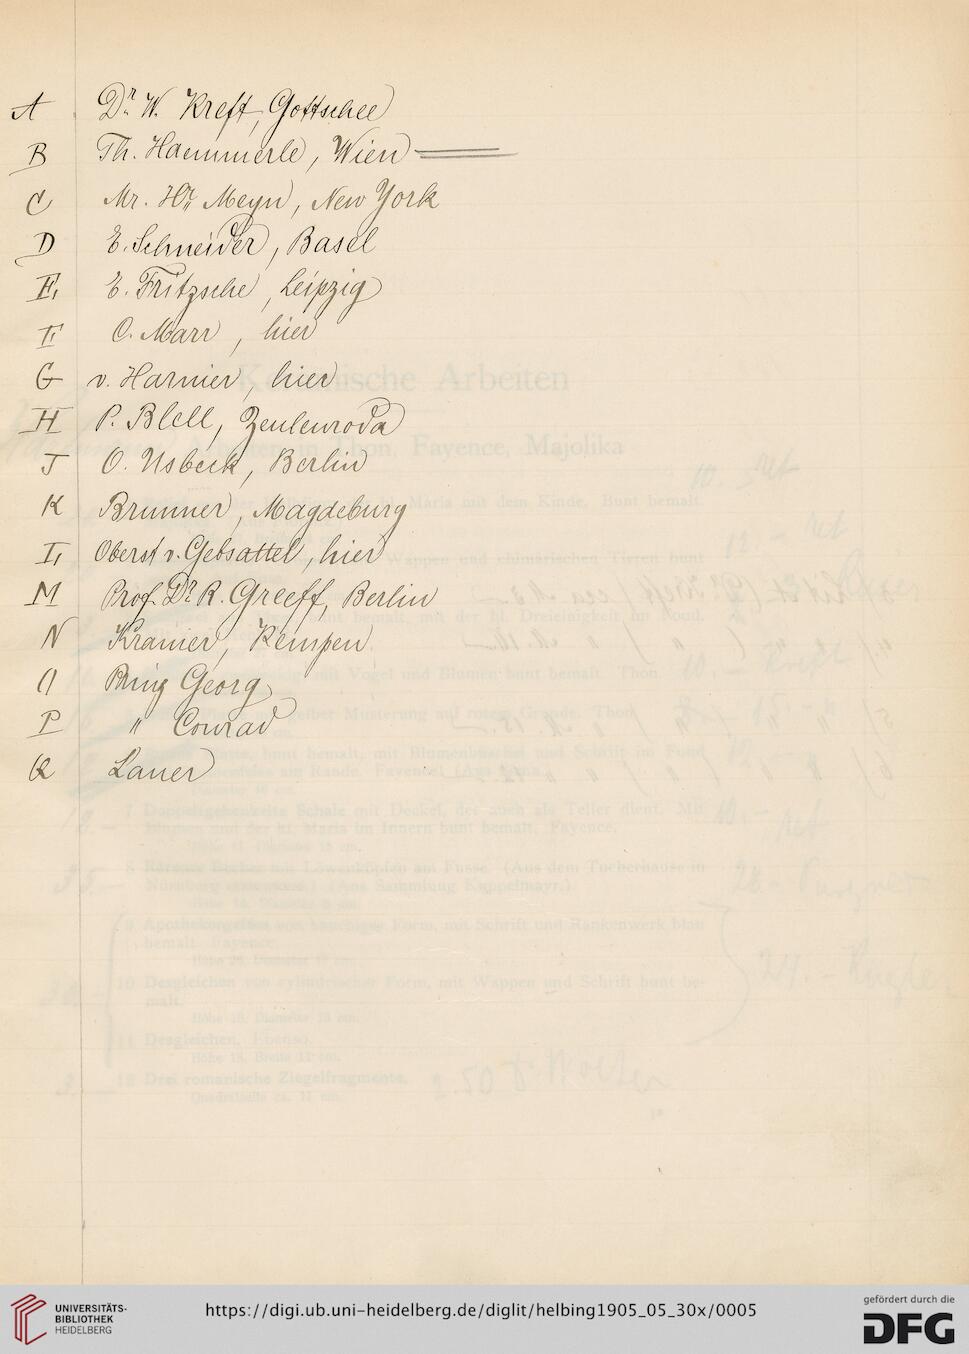 A Dr. W. Kreft, Gottschee
B Th. Haemmerle, Wien
C Mr. Hr. Meyn, New York
D E. Schneider, Basel
E. E. Fritzsche, Leipzig
F C. Marr, hier
G v. Harnier, hier
H P. Blell, Zeulenroda
J O. Usbeck, Berlin
K Brunner, Magdeburg
L Oberst v. Gebsattel, hier
M Prof. Dr. R. Greeff, Berlin
N Kramer, Kempen
O Prinz Georg
P " Conrad
Q Lauer
Keramische Arbeiten
Arbeiten in Thon, Fayence, Majolika
Maria mit dem Kinde. Bunt bemalt.
Wappen und chimärischen Tieren bunt
bunt bemalt, mit der hl. Dreieinigkeit im Fond.
mit Vogel und Blumen bunt bemalt. Thon.
gelber Musterung auf rotem Grunde. Thon
bunt bemalt, mit Blumenbuschen und Schrift im Fond
am Rande. Fayence.
7 Doppeltgehenkelte Schale mit Deckel, der auch als Teller dient. Mit
Blumen und der hl. Maria im Innern bunt bemalt. Fayence.
8 Becher mit Löwenköpfen am Fusse. (Aus dem Tucherhause in
Nürnberg (Aus Sammlung Kuppelmayr.)
9 Apothekergefäss von bauchiger Form, mit Schrift und Rankenwerk blau
bemalt. Fayence.
10 Desgleichen von cylindrischer Form, mit Wappen und Schrift bunt be-
malt.
Höhe 18, Diameter 13 cm.
11 Desgleichen. Ebenso.
Höhe 18, Breite 11 cm.
12 Drei romanische Ziegelfragmente.
Quadratseite ca. 11 cm.
UNIVERSITÄTS-
BIBLIOTHEK
HEIDELBERG
https://digi.ub.uni-heidelberg.de/diglit/helbing1905_05_30x/0005
gefördert durch die
DFG